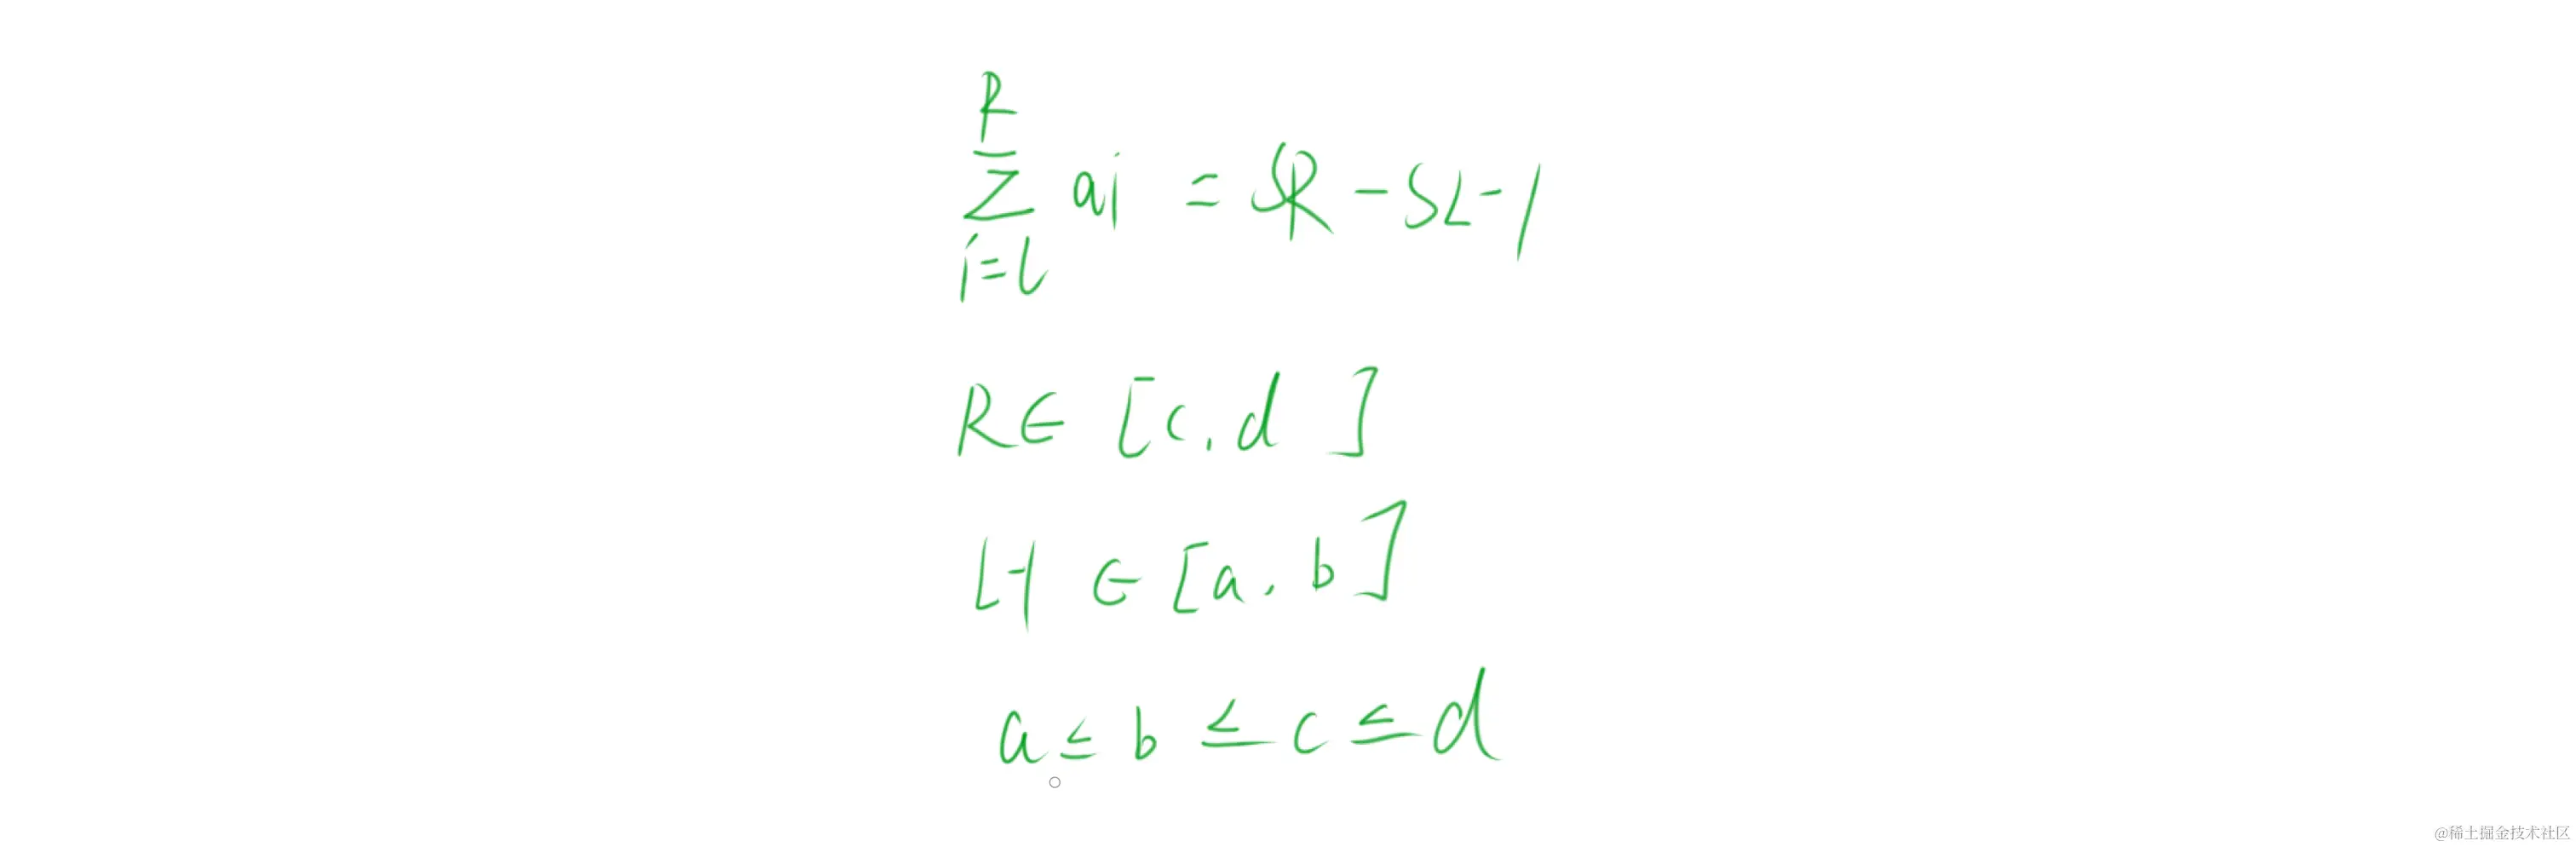 R
∑ ai = SR - SL-1
i=l
R∈ [c, d ]
L-1 ∈ [a, b]
a ≤ b ≤ c ≤ d
@稀土掘金技术社区